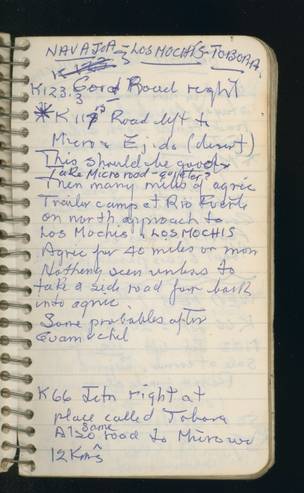 NAVAJOA - LOS MOCHIS - TOBORA.
K 123
K123. Good Road right
3
* K 117 Road left to
Micro & Ejido (desert)
This should be good
Take Micro road - go far?
Then many miles of agric
Trailer camp at Rio Fuerte
on north approach to
Los Mochis. LOS MOCHIS
Agric for 40 miles or more
Nothing seen unless to
take a side road far back
into agric.
Some probables after
Guamuchil
K66 Jctn right at
place called Tobora
Also same road to Microwave
12 Kms